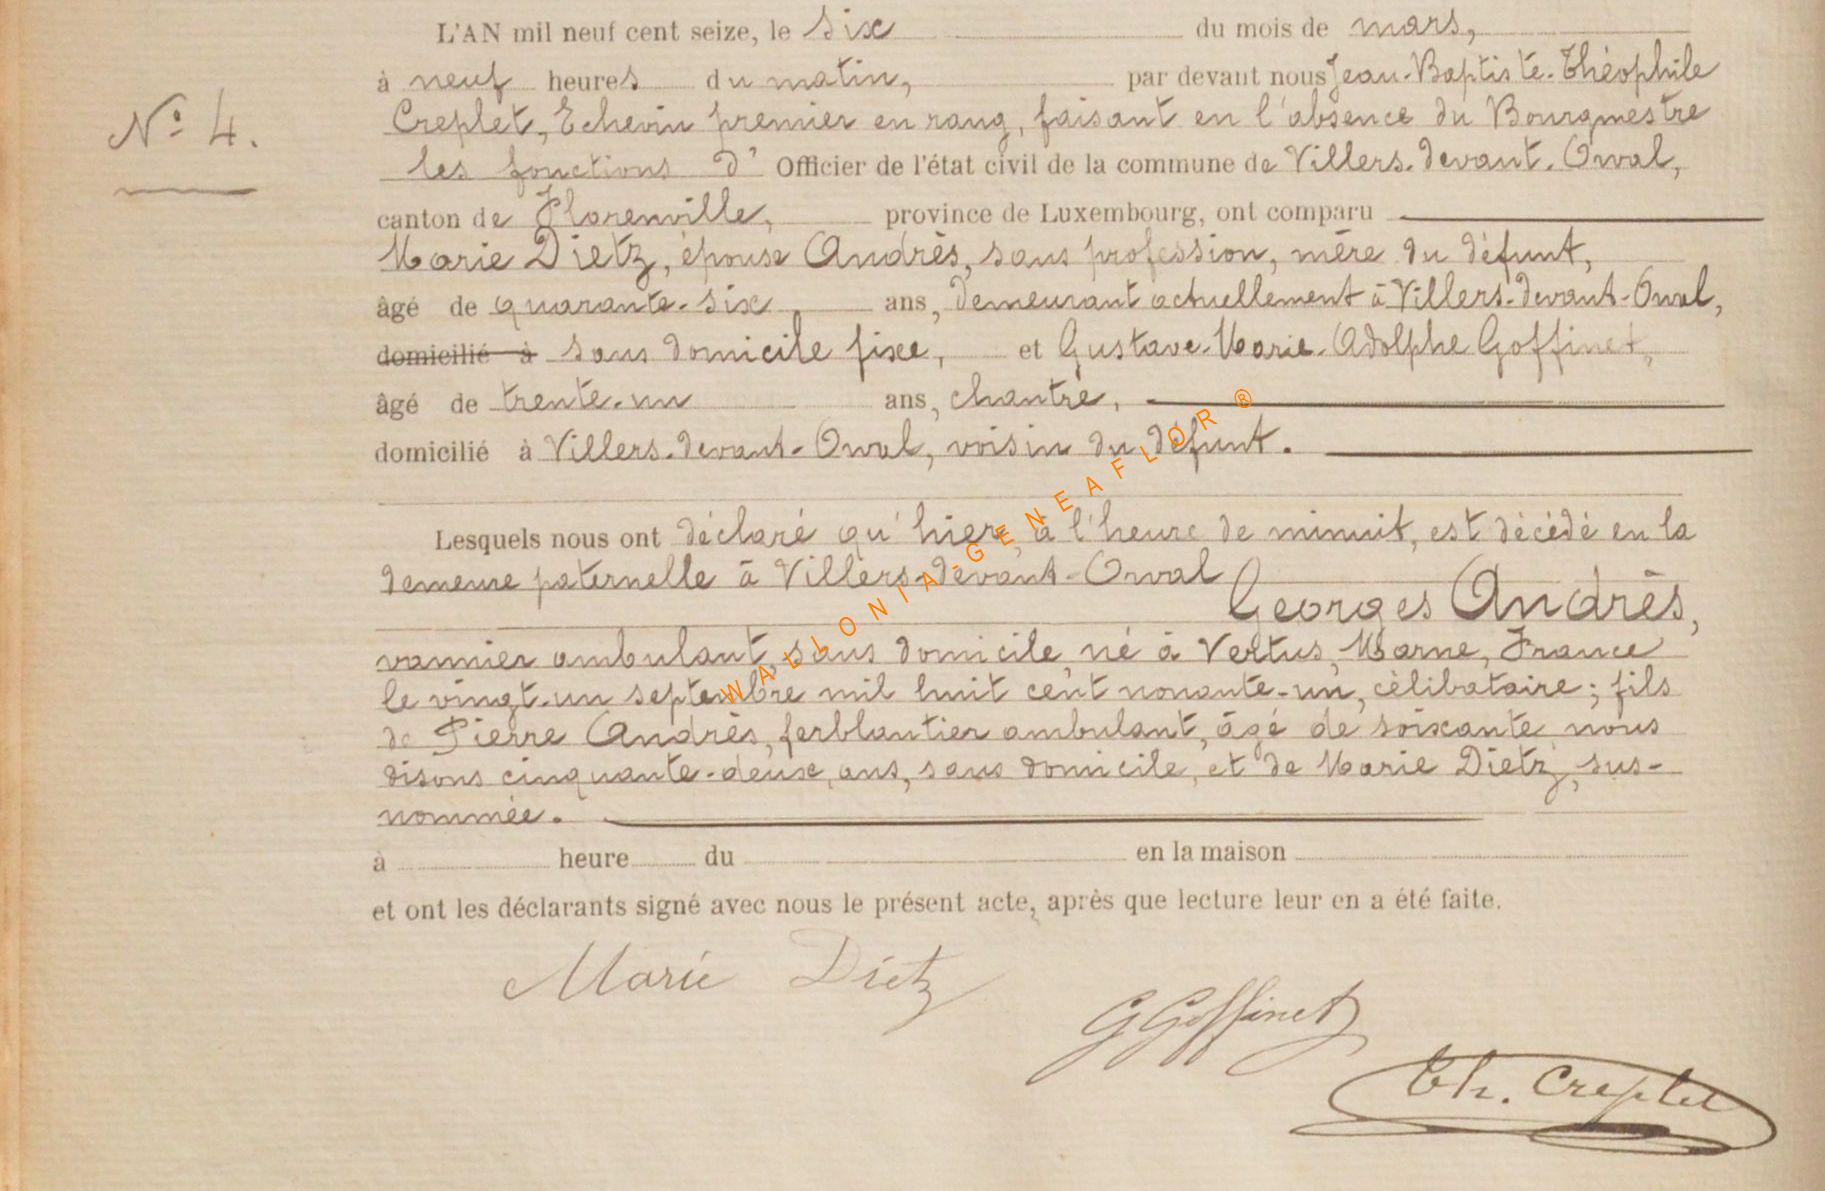 L'AN mil neuf cent seize, le six du mois de mars,
à neuf heures du matin, par devant nous Jean-Baptiste-Théophile
Creplet, Echevin premier en rang, faisant en l'absence du Bourgmestre
N° 4.
les fonctions d' Officier de l'état civil de la commune de Villers-devant-Orval,
canton de Florenville, province de Luxembourg, ont comparu
Marie Dietz, épouse Andrès, sans profession, mère du défunt,
âgé de quarante-six ans, demeurant actuellement à Villers-devant-Orval,
domicilié à sans domicile fixe, et Gustave-Marie-Adolphe Goffinet,
âgé de trente-un ans, chantre,
domicilié à Villers-devant-Orval, voisin du défunt.
Lesquels nous ont déclaré qu'hier, à l'heure de minuit, est décédé en la
demeure paternelle à Villers-devant-Orval
Georges Andrès,
vannier ambulant, sans domicile, né à Vertus, Marne, France
le vingt-un septembre mil huit cent nonante-un, célibataire; fils
de Pierre Andrès, ferblantier ambulant, âgé de soixante nous
disons cinquante-deux ans, sans domicile, et de Marie Dietz, sus-
nommée.
à heure du en la maison
et ont les déclarants signé avec nous le présent acte, après que lecture leur en a été faite.
Marie Dietz
G Goffinet
Th. Creplet
WALLONIA-GENEAFLOR®